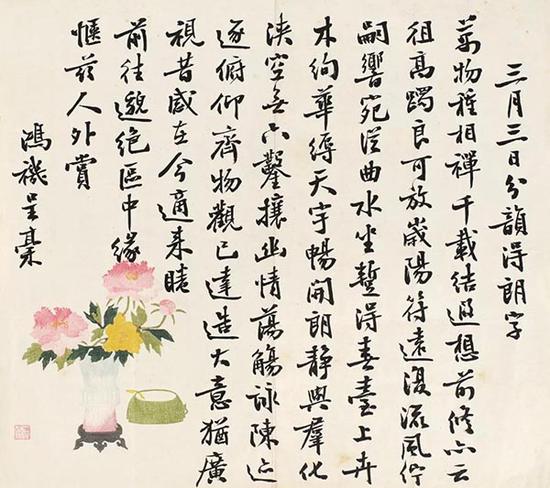 三月三日分韻得朗字
萬物種相禪千載結遐想前修亦云
徂高躅良可放歲陽符遠復流風佇
嗣響宛從曲水坐蹔得春臺上卉
木絢華縟天宇暢開朗靜與羣化
浹空無六鑿攘幽情蕩觴詠陳迹
遂俯仰齊物觀已達造大意猶廣
視昔感在今適來
前往邈絕區中緣
愜茲人外賞
鴻禨呈稾